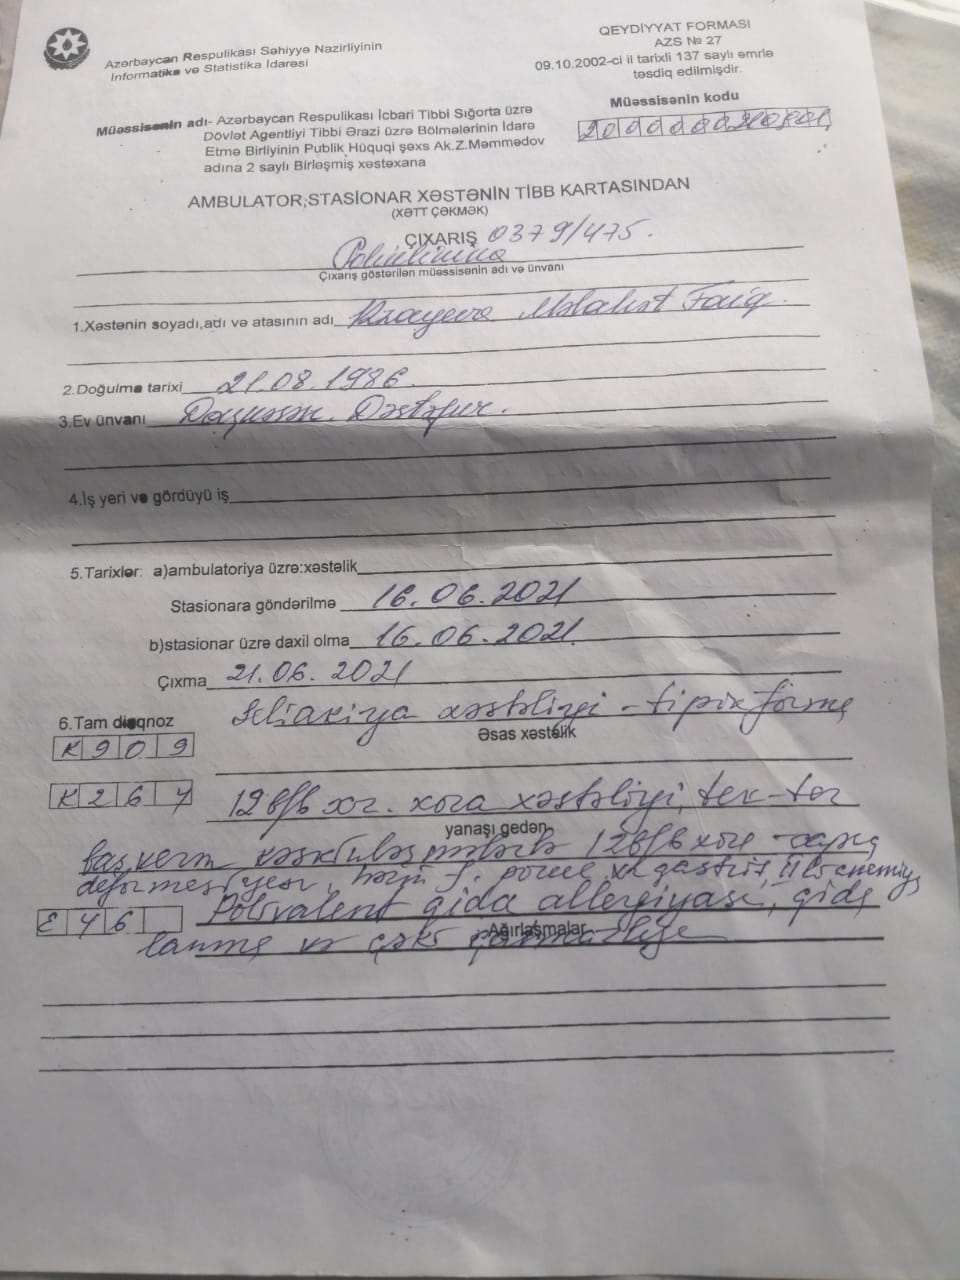 Azərbaycan Respulikası Səhiyyə Nazirliyinin
İnformatika və Statistika İdarəsi
QEYDİYYAT FORMASI
AZS № 27
09.10.2002-ci il tarixli 137 saylı əmrlə
təsdiq edilmişdir.
Müəssisənin kodu
Müəssisənin adı- Azərbaycan Respulikası İcbari Tibbi Sığorta üzrə
Dövlət Agentliyi Tibbi Ərazi üzrə Bölmələrinin İdarə
Etmə Birliyinin Publik Hüquqi şəxs Ak.Z.Məmmədov
adına 2 saylı Birləşmiş xəstəxana
AMBULATOR,STASİONAR XƏSTƏNİN TİBB KARTASINDAN
(XƏTT ÇƏKMƏK)
ÇIXARIŞ 0379/475.
Poliklinika
Çıxarış göstərilən müəssisənin adı və ünvanı
1.Xəstənin soyadı,adı və atasının adı Məlahət Faiq
2.Doğulma tarixi 21.08.1986
3.Ev ünvanı Daşkəsən. Dəstəfur.
4.İş yeri və gördüyü iş
5.Tarixlər: a)ambulatoriya üzrə:xəstəlik
Stasionara göndərilmə 16.06.2021
b)stasionar üzrə daxil olma 16.06.2021
Çıxma 21.06.2021
6.Tam diaqnoz Seliakiya xəstəliyi - tipik forma
K909 Əsas xəstəlik
K267 12 b/b xor. xora xəstəliyi, tez-tez
yanaşı gedən
12 b/b xora
deformasiyası, gastrit, II li anemiya
E46 Polivalent qida allergiyası, qida
Ağırlaşmalar
lanma və çəki